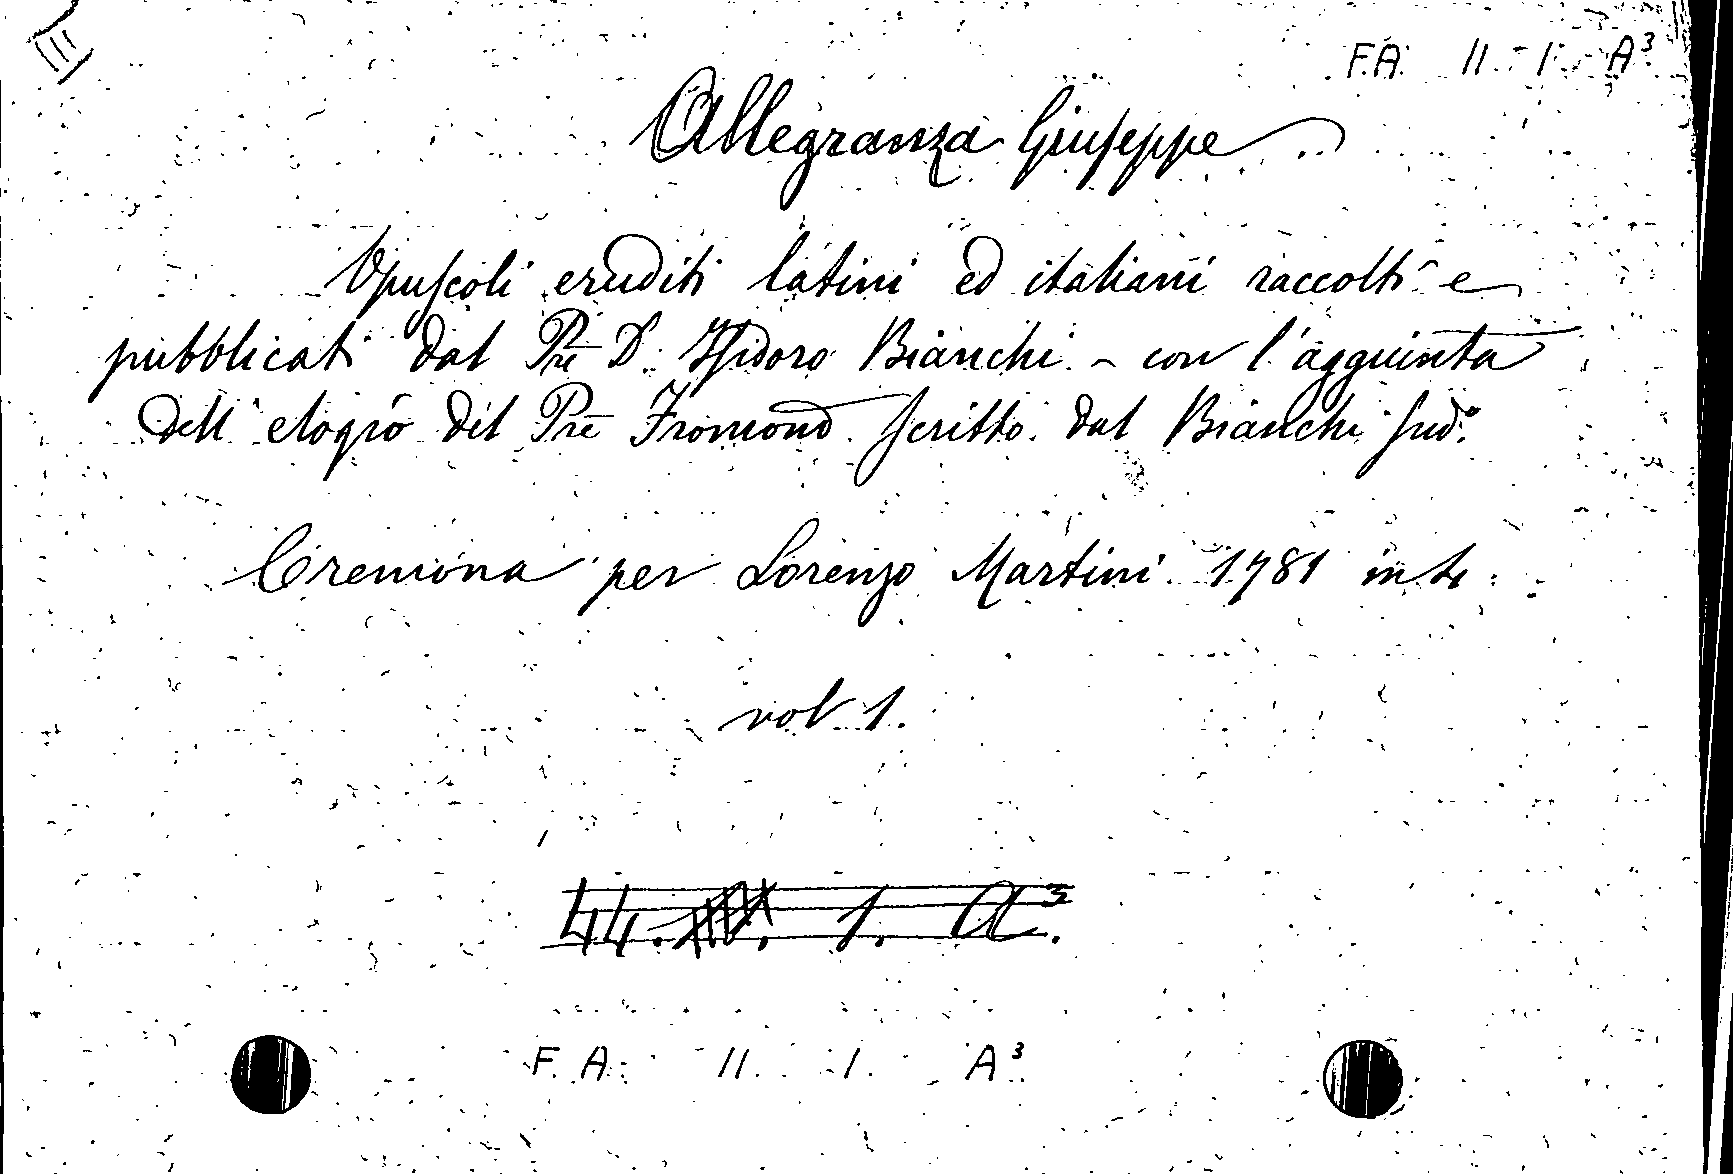 III
F.A. II. I. A³
Allegranza Giuseppe
Opuscoli eruditi latini ed italiani raccolti e
pubblicati dal Pre D. Isidoro Bianchi - con l'aggiunta
dell' elogio del Pre Fromond scritto dal Bianchi sudº.
Cremona per Lorenzo Martini 1781 in 4.
vol 1.
44. 1. A³.
F. A. II. I. A³